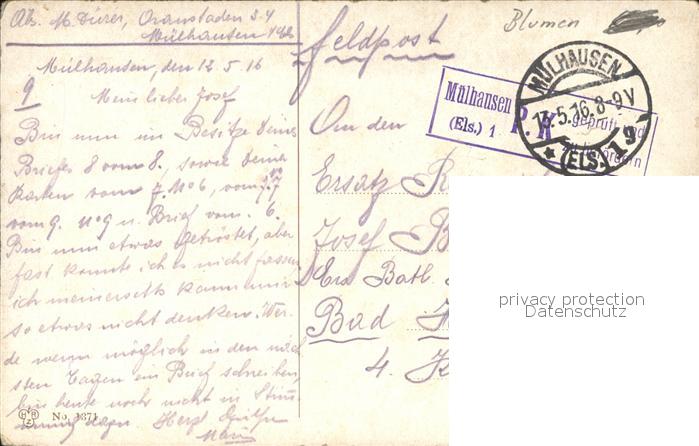 Abs. M. Dürer, Oranstaden 34
Mülhausen i/Els
Mülhausen, den 12.5.16
9
Mein lieber Josef
Bin nun im Besitze Deines
Briefes 8 vom 8., sowie Deiner
Karten vom 7. No 6, vom
vom 9. No 9 u. Brief vom 6.
Bin nun etwas getröstet, aber
fast konnte ich es nicht fassen
ich meinerseits kann mir
so etwas nicht denken. Wer-
de wenn möglich in den näch
sten Tagen ein Brief schreiben,
bin heute noch nicht in Stim-
mung dazu. Herzl
No. 1371
Blumen
Feldpost
Mülhausen
(Els.) 1
P. K
geprüft und
zu befördern
MÜLHAUSEN
13.5.16.8-9V
* (ELS.) 1g
An den
Ersatz
Josef
Ers Batl.
Bad
4. K
privacy protection
Datenschutz